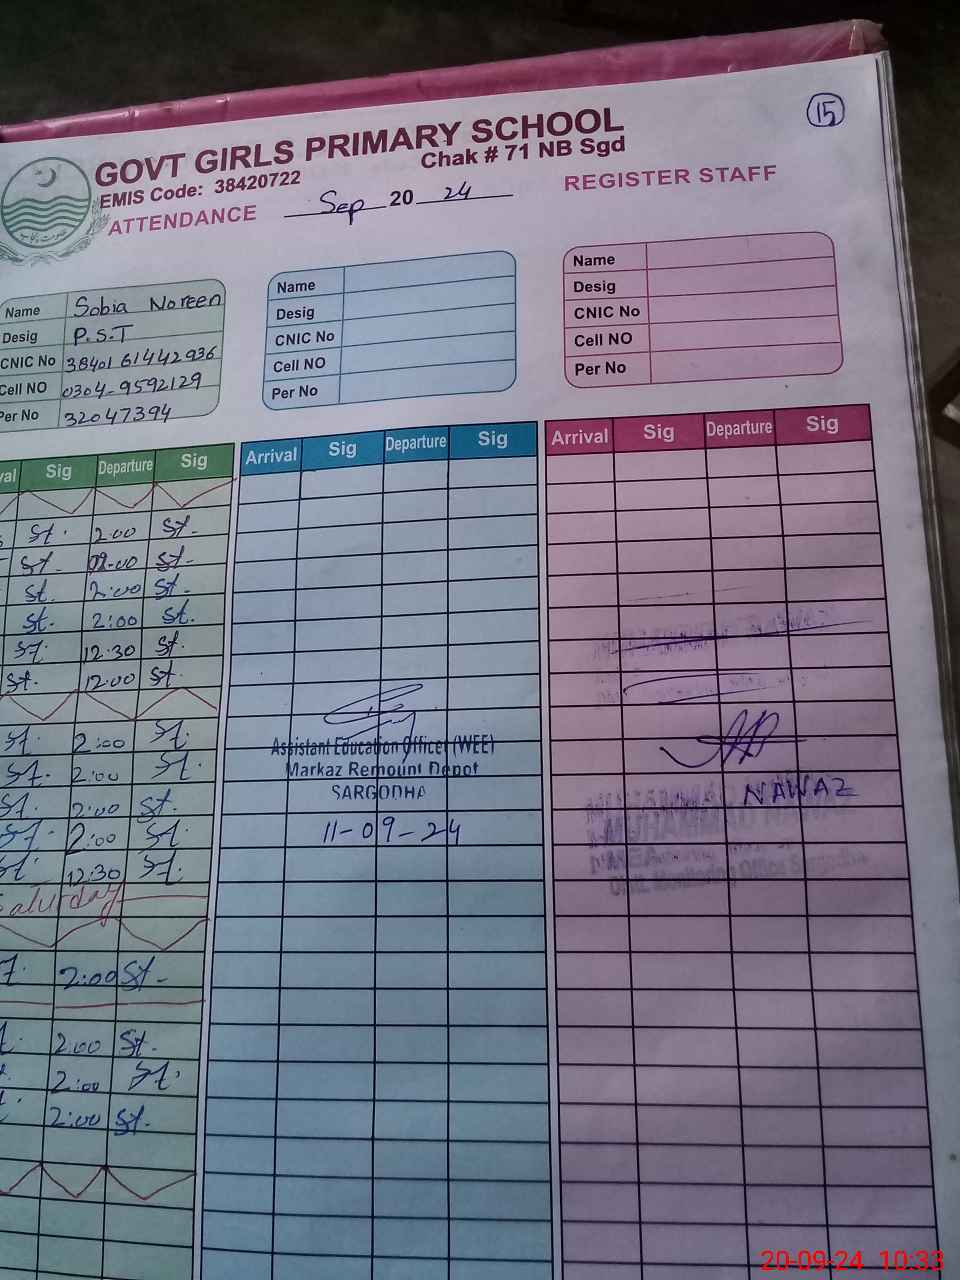 15
GOVT GIRLS PRIMARY SCHOOL
EMIS Code: 38420722 Chak # 71 NB Sgd
ATTENDANCE Sep 20 24 REGISTER STAFF
Name Sobia Noreen
Desig P.S.T
CNIC No 3840161442936
Cell NO 0304-9592129
Per No 32047394
Name
Desig
CNIC No
Cell NO
Per No
Name
Desig
CNIC No
Cell NO
Per No
val Sig Departure Sig
Arrival Sig Departure Sig
Arrival Sig Departure Sig
St. 2:00 St.
St. 02:00 St.
St. 2:00 St.
St. 2:00 St.
St. 12:30 St.
St. 12:00 St.
St. 2:00 St.
St. 2:00 St.
St. 2:00 St.
St. 2:00 St.
St. 12:30 St.
Saturday
St. 2:00 St.
t. 2:00 St.
t. 2:00 St.
t. 2:00 St.
Assistant Education Officer (WEE)
Markaz Remount Depot
SARGODHA
11-09-24
NAWAZ
Monitoring Office Sargodha
20-09-24 10:33